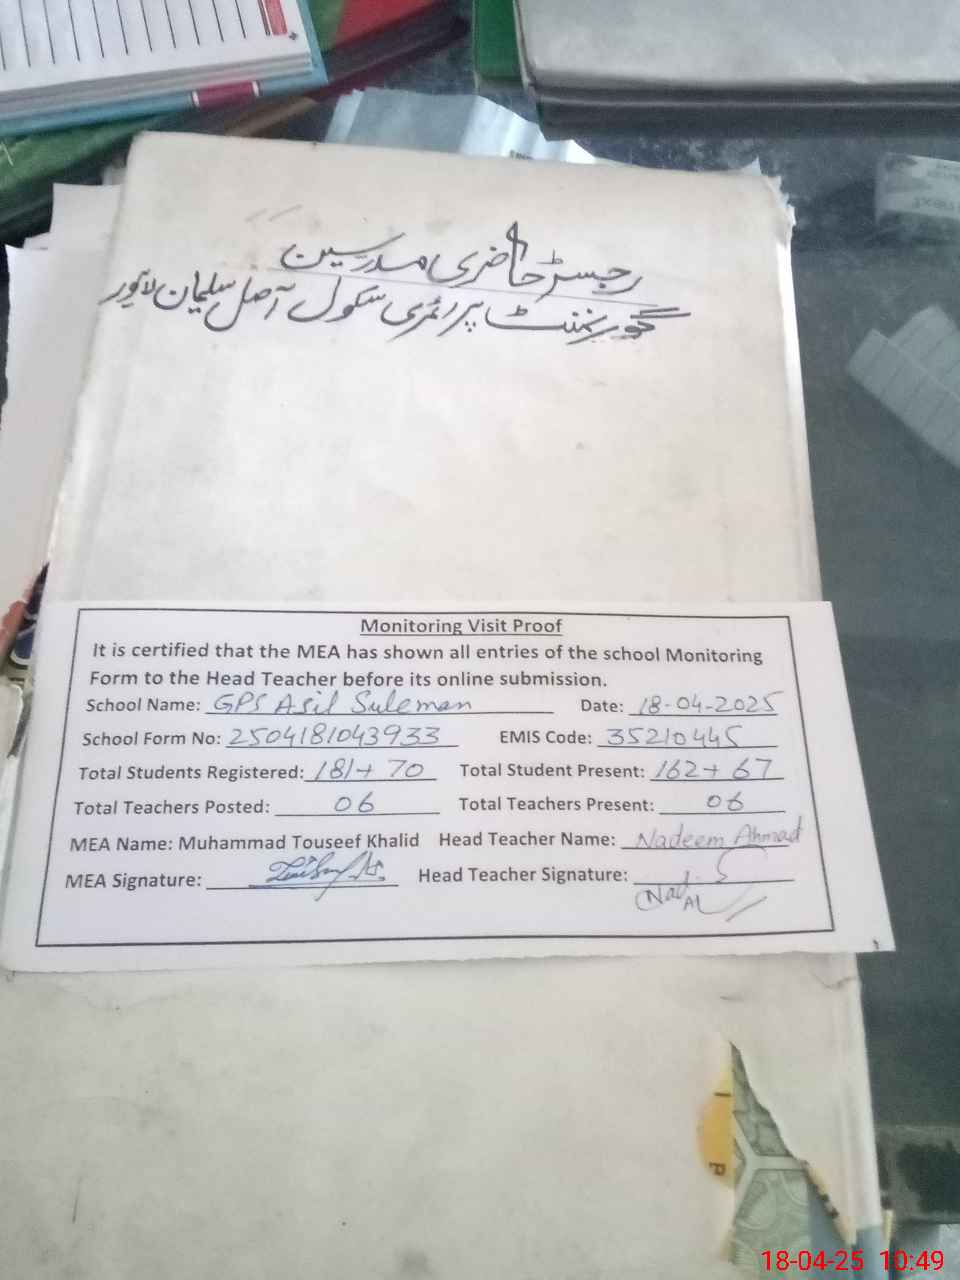 رجسٹر حاضری مدرسین
گورنمنٹ پرائمری سکول آصل سلیمان لاہور
Monitoring Visit Proof
It is certified that the MEA has shown all entries of the school Monitoring
Form to the Head Teacher before its online submission.
School Name: GPS Asil Suleman Date: 18-04-2025
School Form No: 2504181043933 EMIS Code: 35210445
Total Students Registered: 181+ 70 Total Student Present: 162+ 67
Total Teachers Posted: 06 Total Teachers Present: 06
MEA Name: Muhammad Touseef Khalid Head Teacher Name: Nadeem Ahmad
MEA Signature: Head Teacher Signature:
I
P
18-04-25 10:49